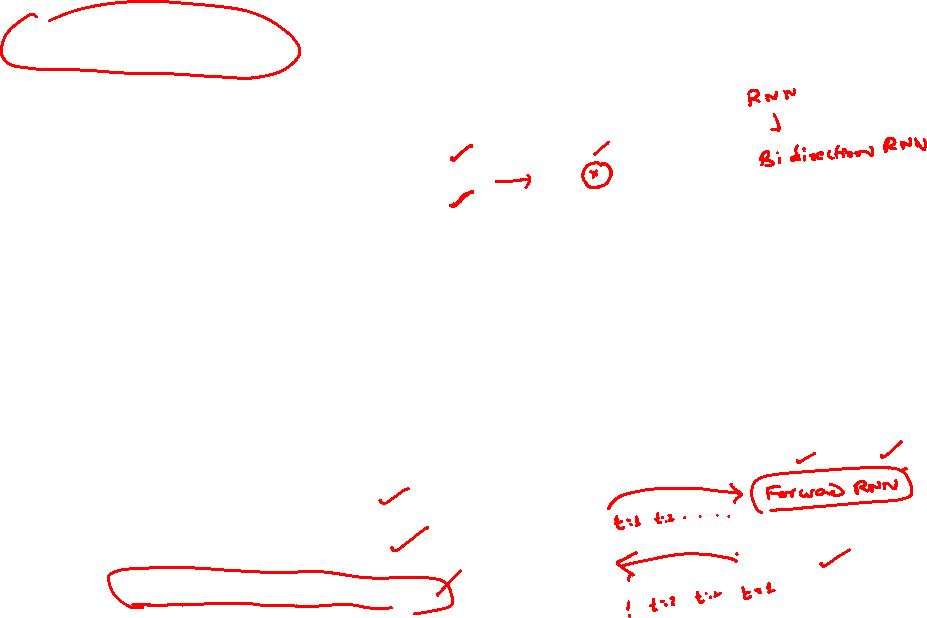 RNN
Bi direction RNN
Forward RNN
t=1 t=2 . . . .